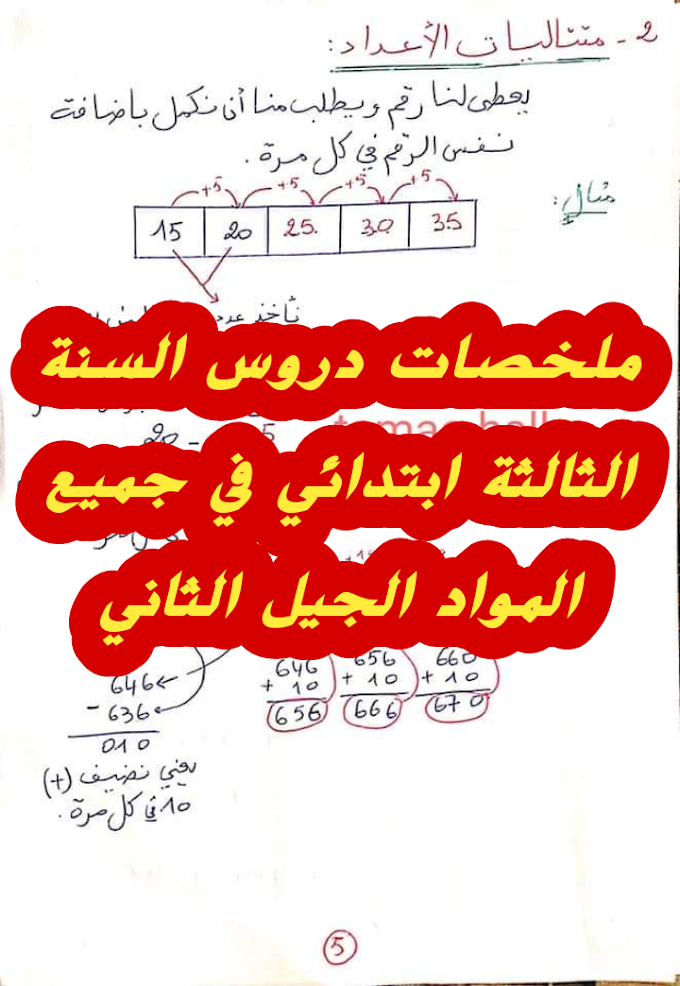 2 - متتاليات الأعداد:
يعطى لنا رقم ويطلب منا أن نكمل باضافة
نفس الرقم في كل مرة.
مثال:
+5 +5 +5 +5
15 20 25. 30. 35.
نأخذ
ملخصات دروس السنة
20 -
الثالثة ابتدائي في جميع
المواد الجيل الثاني
646 656 660
+ 10 + 10 + 10
656 666 670
646
- 636
010
يعني نضيف (+)
10 في كل مرة.
5